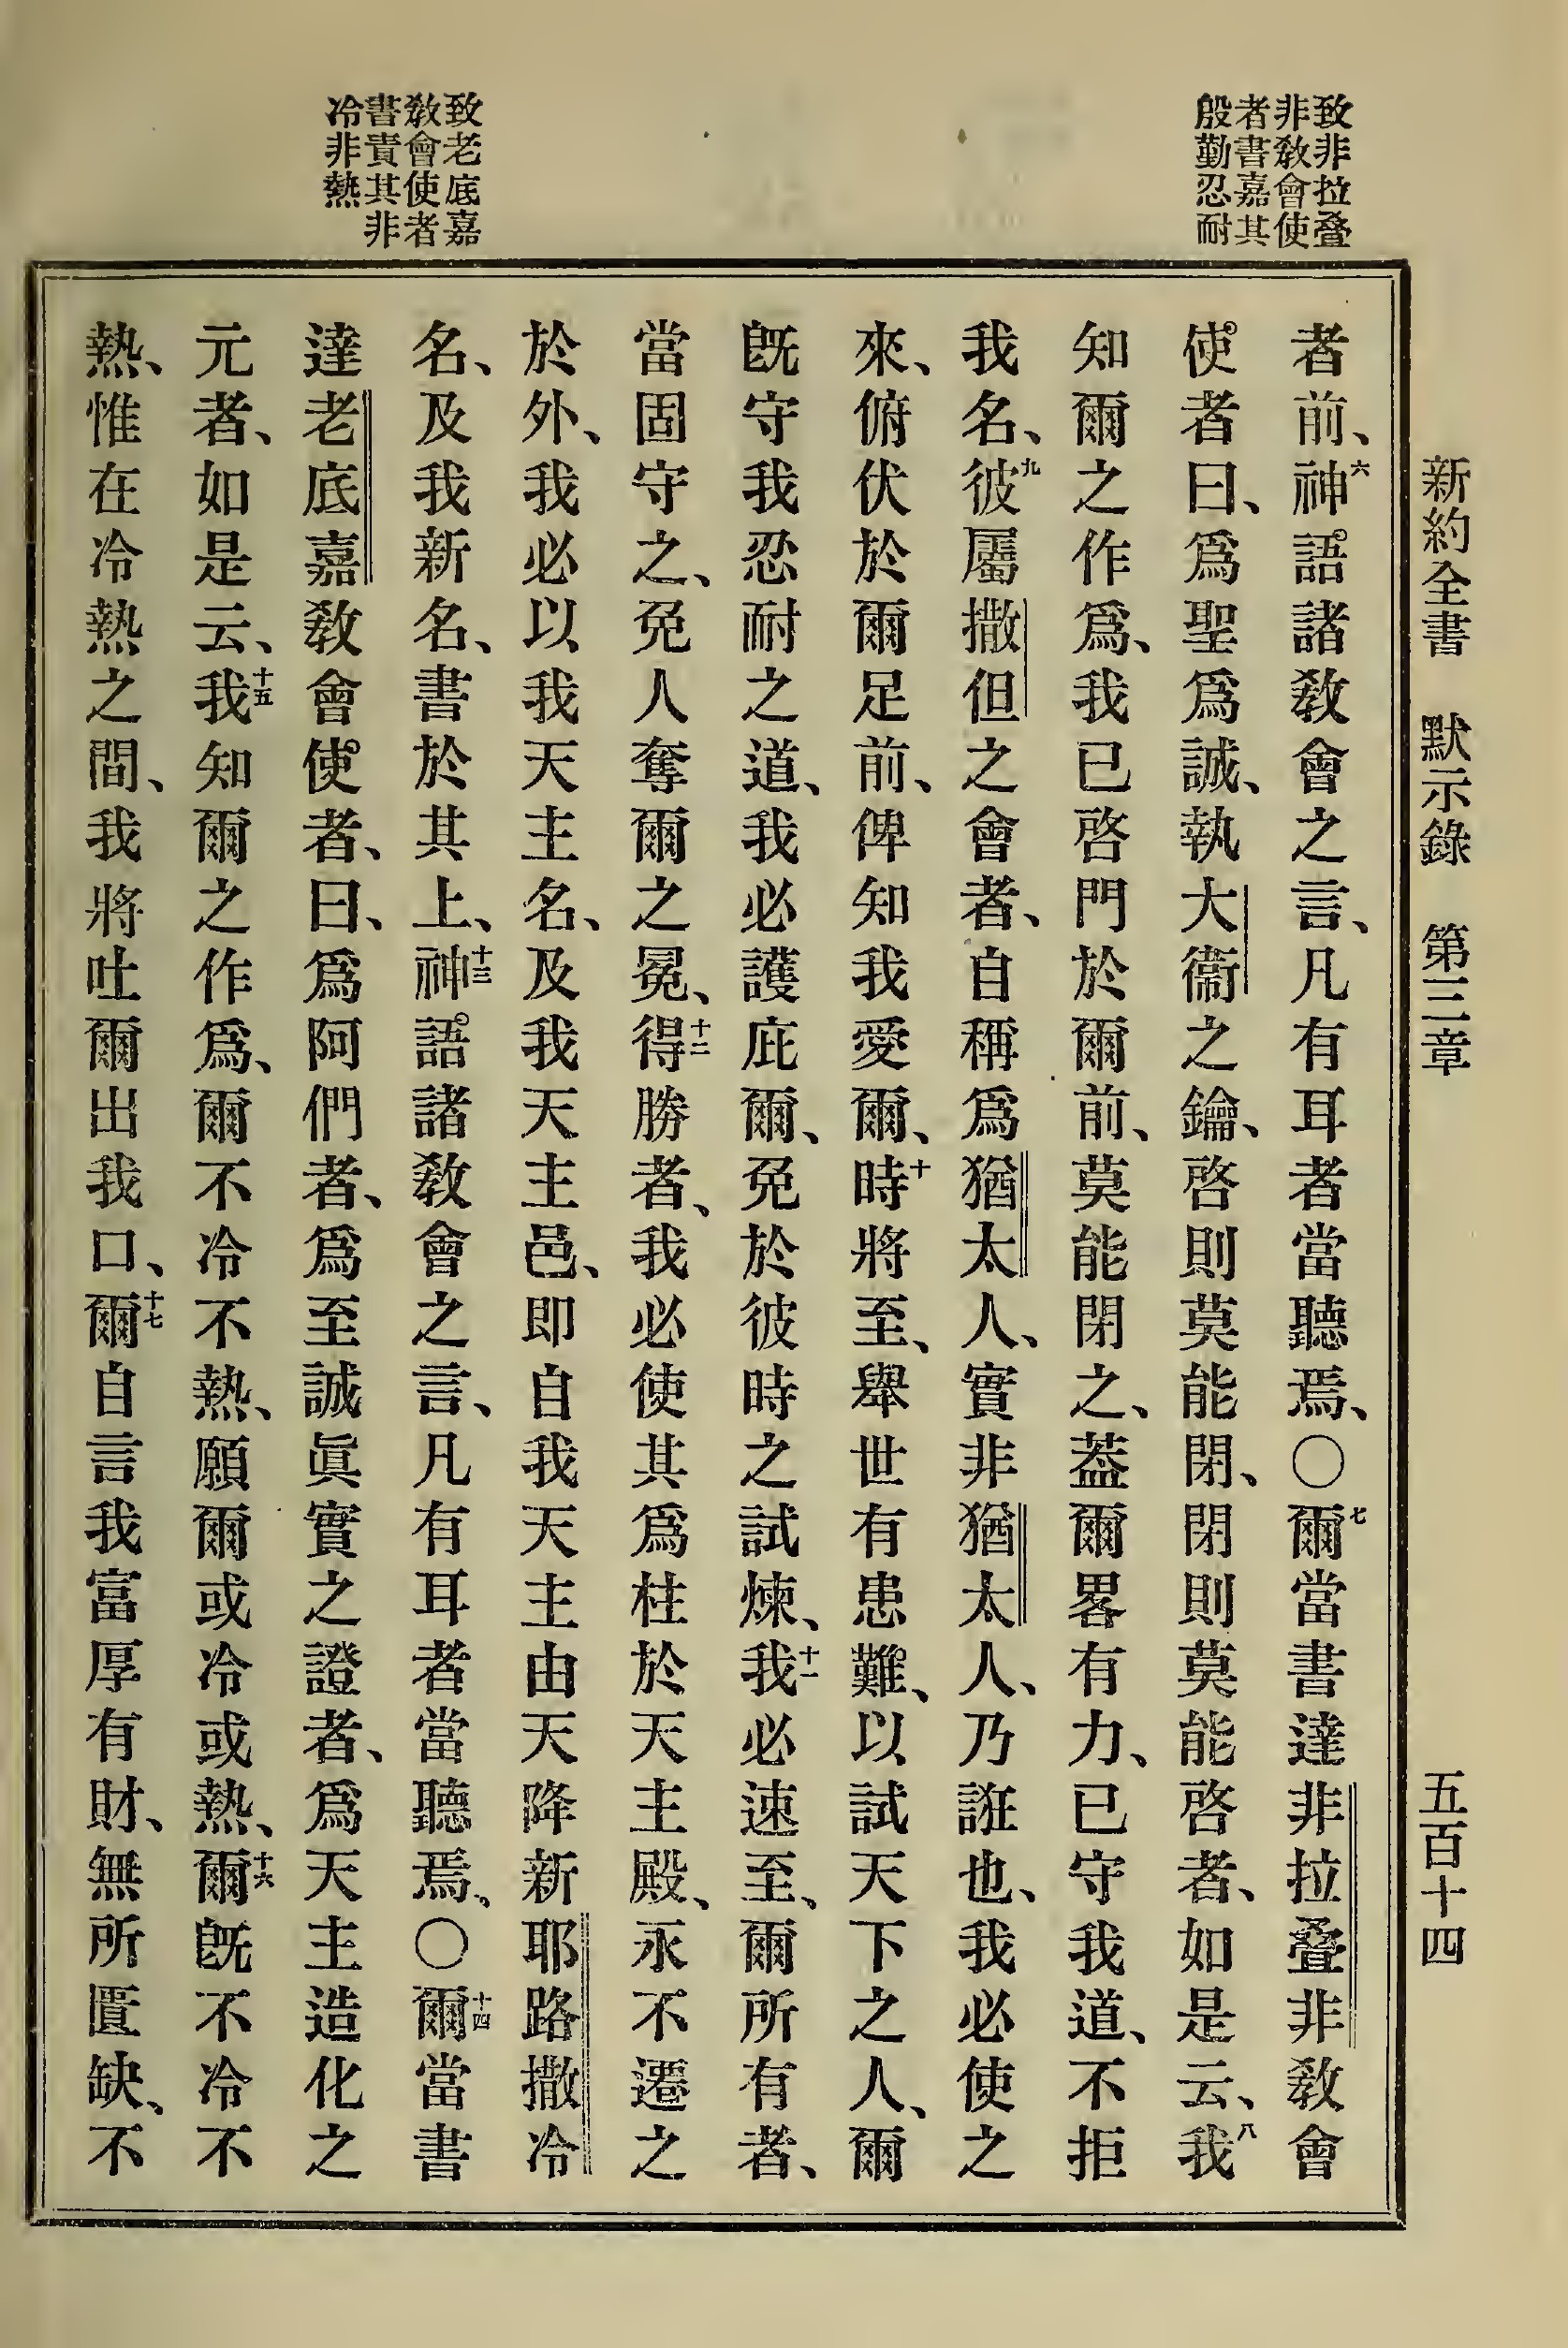 新約全書　默示錄　第三章　五百十四
致非拉疊
非教會使
者書嘉其
殷勤忍耐
致老底嘉
教會使者
書責其非
冷非熱
者前、六神語諸教會之言、凡有耳者當聽焉、〇七爾當書達非拉疊非教會
使者曰、爲聖爲誠、執大衞之鑰、啓則莫能閉、閉則莫能啓者、如是云、八我
知爾之作爲、我已啓門於爾前、莫能閉之、葢爾畧有力、已守我道、不拒
我名、九彼屬撒但之會者、自稱爲猶太人、實非猶太人、乃誑也、我必使之
來、俯伏於爾足前、俾知我愛爾、十時將至、舉世有患難、以試天下之人、爾
旣守我忍耐之道、我必護庇爾、免於彼時之試煉、十一我必速至、爾所有者、
當固守之、免人奪爾之冕、十二得勝者、我必使其爲柱於天主殿、永不遷之
於外、我必以我天主名、及我天主邑、即自我天主由天降新耶路撒冷
名、及我新名、書於其上、十三神語諸教會之言、凡有耳者當聽焉、〇十四爾當書
達老底嘉教會使者、曰、爲阿們者、爲至誠眞實之證者、爲天主造化之
元者、如是云、十五我知爾之作爲、爾不冷不熱、願爾或冷或熱、十六爾旣不冷不
熱、惟在冷熱之間、我將吐爾出我口、十七爾自言我富厚有財、無所匱缺、不